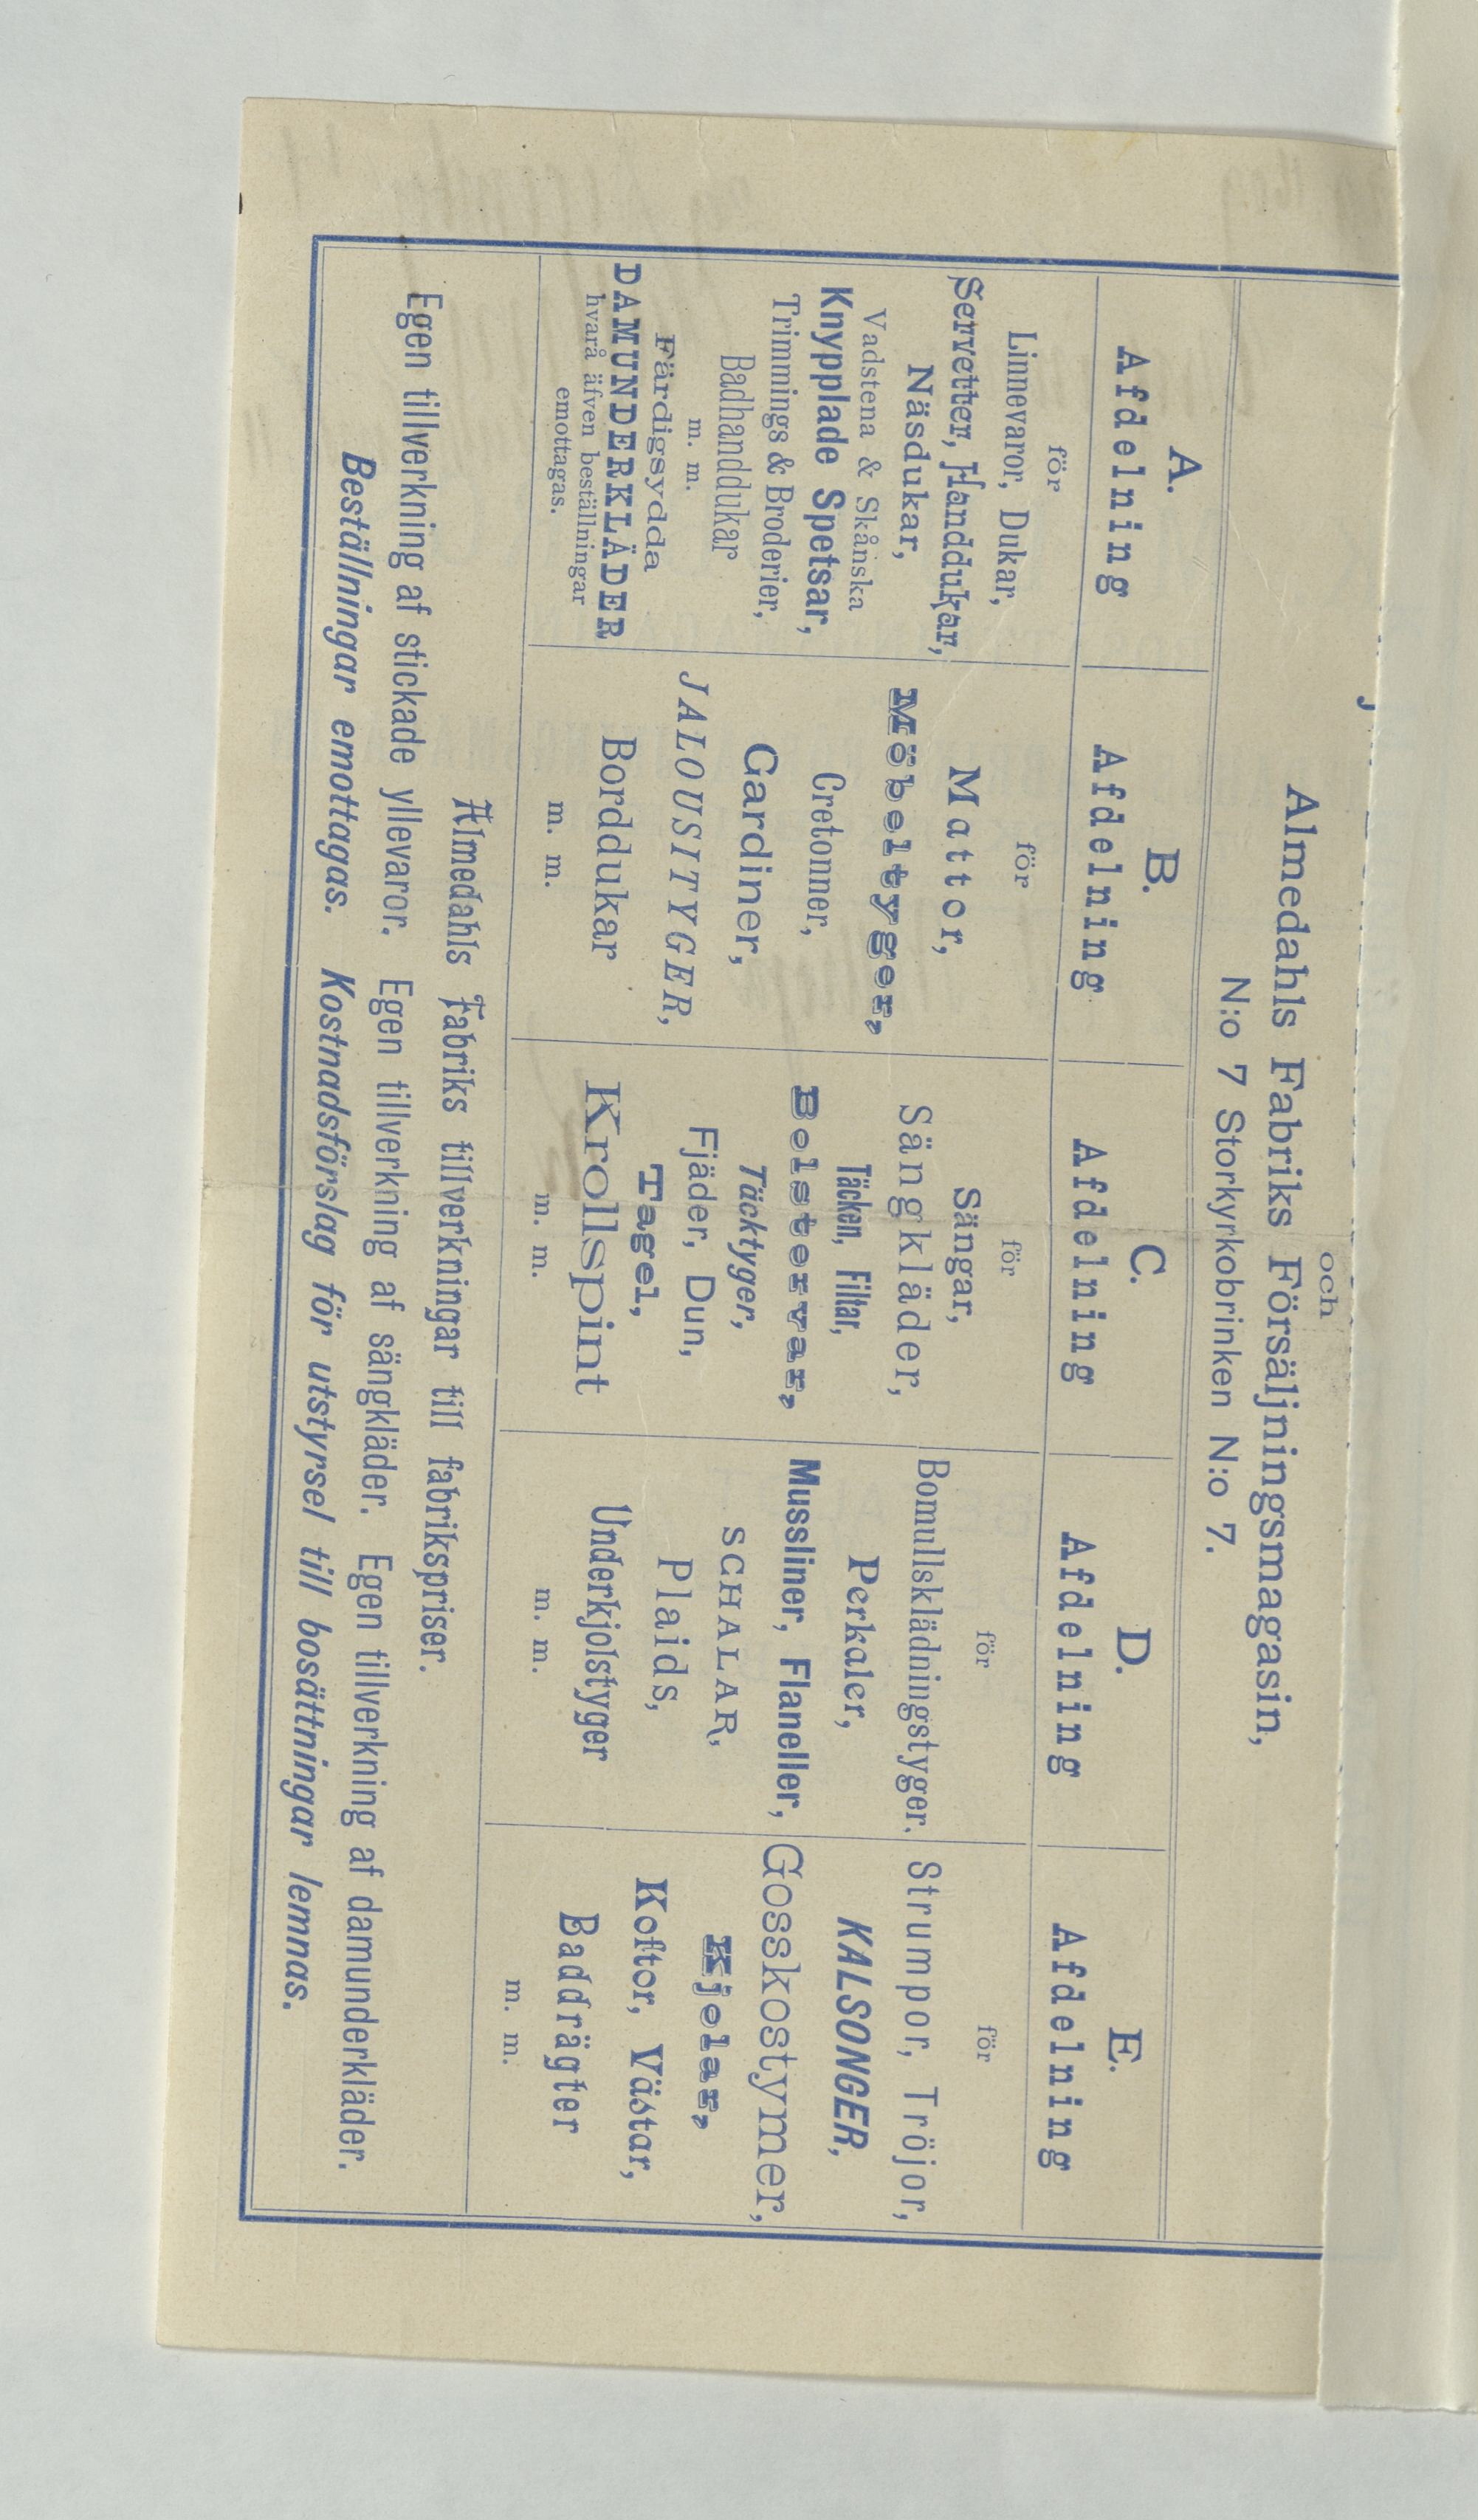 och
Almedahls Fabriks Försäljningsmagasin,
N:o 7 Storkyrkobrinken N:o 7.
A.
Afdelning
för
Linnevaror, Dukar,
Servetter, Handdukar,
Näsdukar,
Vadstena & Skånska
Knypplade Spetsar,
Trimmings & Broderier,
Badhanddukar
m. m.
Färdigsydda
DAMUNDERKLÄDER
hvarå äfven beställningar
emottagas.
B.
Afdelning
för
Mattor,
Möbeltyger,
Cretonner,
Gardiner,
JALOUSITYGER,
Borddukar
m. m.
C.
Afdelning
för
Sängar,
Sängkläder,
Täcken, Filtar,
Bolstervar,
Täcktyger,
Fjäder, Dun,
Tagel,
Krollspint
m. m.
D.
Afdelning
för
Bomullsklädningstyger.
Perkaler,
Mussliner, Flaneller,
SCHALAR,
Plaids,
Underkjolstyger
m. m.
E.
Afdelning
för
Strumpor, Tröjor,
KALSONGER,
Gosskostymer,
Kjolar,
Koftor, Västar,
Baddrägter
m. m.
Almedahls Fabriks tillverkningar till fabrikspriser.
Egen tillverkning af stickade yllevaror. Egen tillverkning af sängkläder. Egen tillverkning af damunderkläder.
Beställningar emottagas. Kostnadsförslag för utstyrsel till bosättningar lemnas.